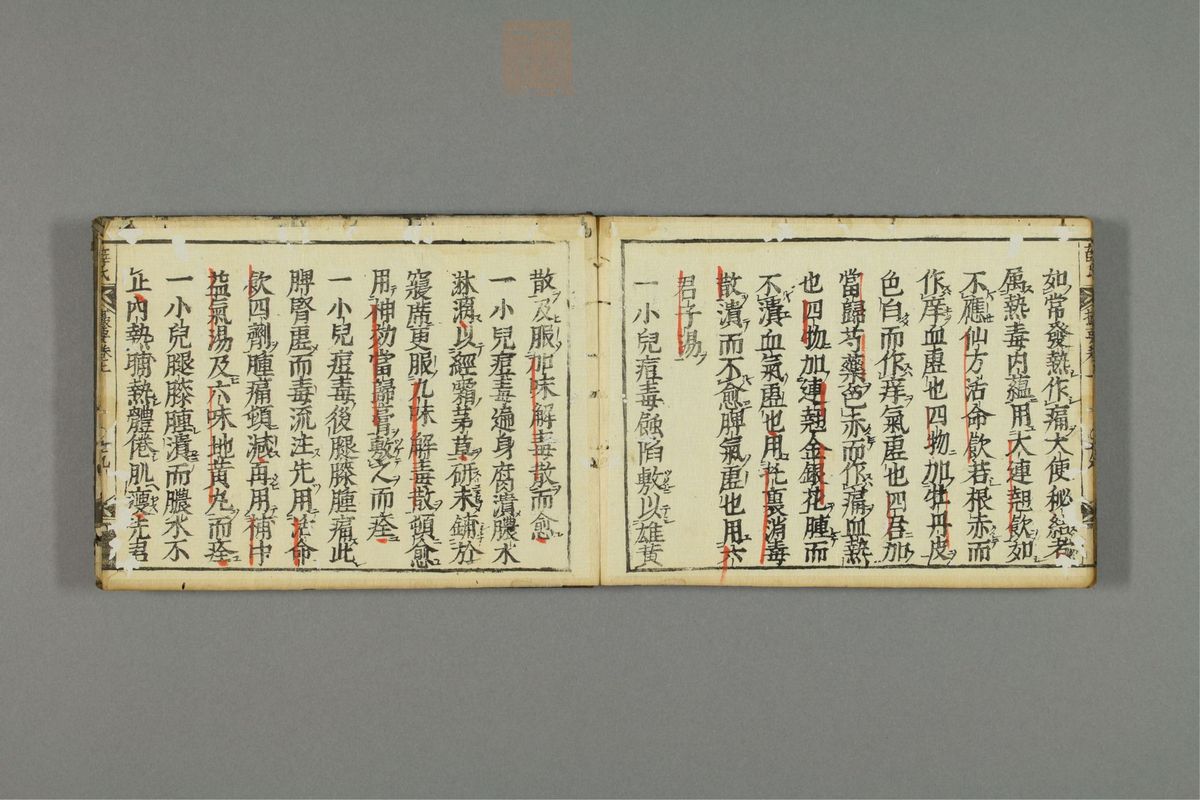 如常發熱作痛大使秘結者
属熱毒内蘊用大連翹飲如
不應仙方活命飲若根赤而
作痒血虛也四物加牡丹皮
色白而作痒氣虛也四君加
當歸芍藥色赤而作痛血熱
也四物加連翹金銀花腫而
不潰血氣虛也用托裏消毒
散潰而不愈脾氣虛也用六
君子湯
一小兒痘毒蝕陷敷以雄黄
散及服加味解毒散而愈
一小兒痘毒遍身腐潰膿水
淋漓以經霜茅草研末鋪於
寢席更服九味解毒散頓愈
用神効當歸膏敷之而痊
一小兒痘毒後腿膝腫痛此
脾腎虛而毒流注先用活命
飲四劑腫痛頓減再用補中
益氣湯及六味地黄丸而痊
一小兒腿膝腫潰而膿水不
止内熱晡熱體倦肌瘦先君